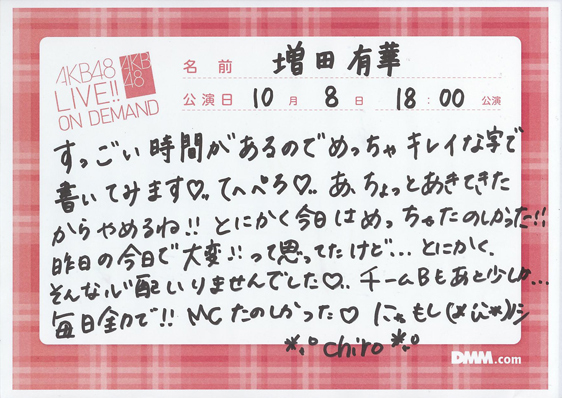 AKB48
LIVE!!
ON DEMAND
AKB
48
名前 増田有華
公演日 10月8日 18:00公演
すっごい時間があるのでめっちゃキレイな字で
書いてみます♡〟てへぺろ♡〟あ、ちょっとあきてきた
からやめるね!! とにかく今日はめっちゃたのしかった!!
昨日の今日で大変!!って思ってたけど…とにかく、
そんな心配いりませんでした♡〟チームBもあと少しか…
毎日全力で!! MCたのしかった♡ にゃもし
*.° chiro *.°
DMM.com